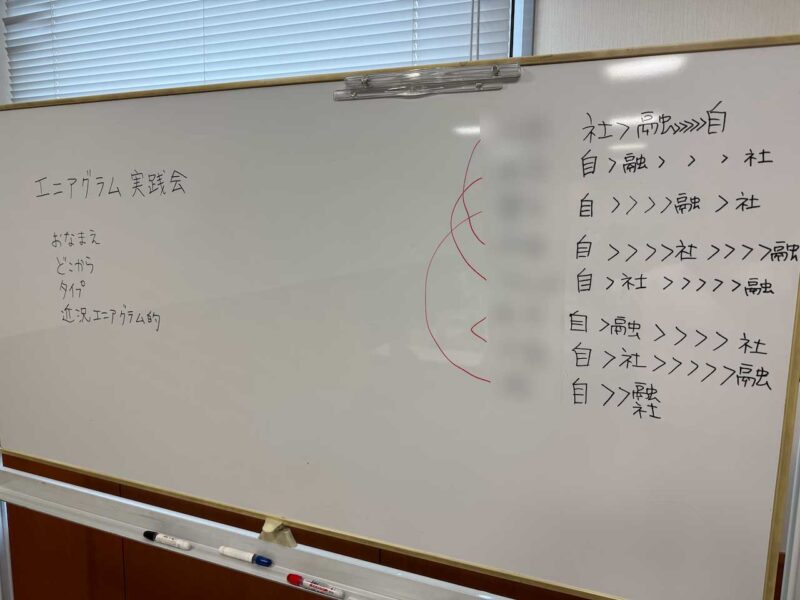 エニアグラム実践会
おなまえ
どこから
タイプ
近況エニアグラム的
社>融>>>>>自
自>融> > > 社
自>>>>融>社
自>>>>社>>>>融
自>社>>>>>融
自>融>>>>社
自>社>>>>>融
自>>融
社